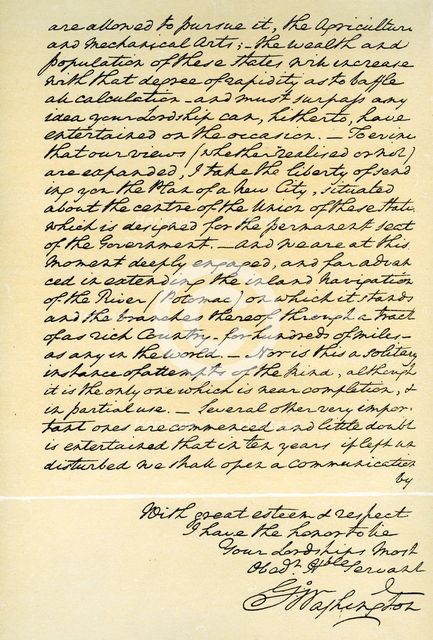 are allowed to pursue it, the Agriculture
and Mechanical Arts; – the wealth and
population of these States will increase
with that degree of rapidity as to baffle
all calculation – and must surpass any
idea your Lordship can, hitherto, have
entertained on the occasion. – To evince
that our views (whether realised or not)
are expanded, I take the liberty of send
ing you the Plan of a new City, situated
about the centre of the Union of these States
which is designed for the permanent seat
of the Government. – And we are at this
moment deeply engaged, and far advan
ced in extending the inland navigation
of the River (Potomac) on which it stands
and the branches thereof through a tract
of as rich Country – for hundreds of miles –
as any in the world. – Nor is this a solitary
instance of attempts of the kind, although
it is the only one which is near completion, &
in partial use. – Several other very impor-
tant ones are commenced and little doubt
is entertained that in ten years if left un
disturbed we shall open a communication
by
With great esteem & respect
I have the honor to be
Your Lordships Most
Obedt Hble Servant
Go Washington